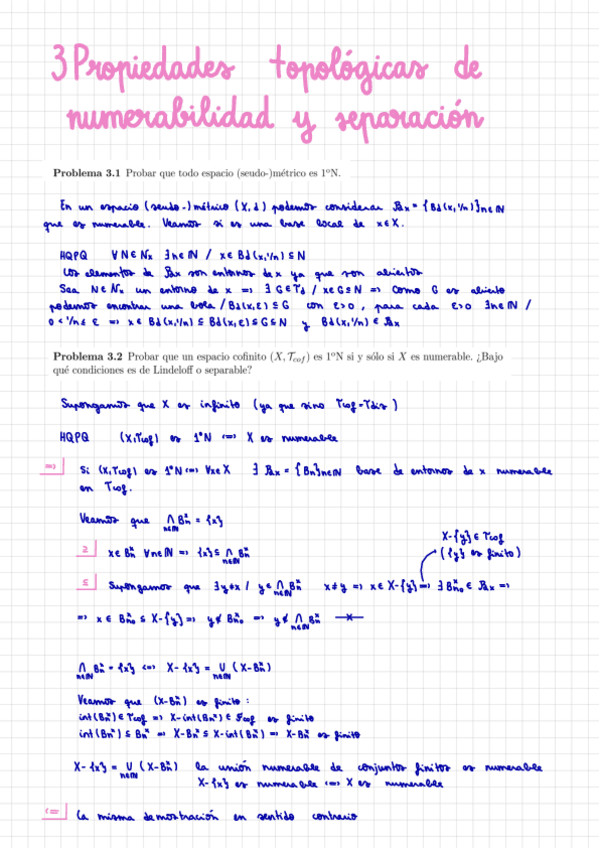 3 Propiedades topológicas de
numerabilidad y separación
Problema 3.1 Probar que todo espacio (seudo-)métrico es 1ºN.
En un espacio (seudo-) métrico (X,d) podemos considerar ℬx = {Bd(x,1/n)}n∈ℕ
que es numerable. Veamos si es una base local de x∈X.
HQPQ ∀N∈𝒩x ∃n∈ℕ / x∈Bd(x,1/n)⊆N
Los elementos de ℬx son entornos de x ya que son abiertos
Sea N∈𝒩x un entorno de x => ∃ G∈𝒯d / x∈G⊆N => Como G es abierto
podemos encontrar una bola / Bd(x,ε)⊆G con ε>0, para cada ε>0 ∃n∈ℕ /
0<1/n≤ε => x∈Bd(x,1/n)⊆Bd(x,ε)⊆G⊆N y Bd(x,1/n)∈ℬx
Problema 3.2 Probar que un espacio cofinito (X, 𝒯cof) es 1ºN si y sólo si X es numerable. ¿Bajo
qué condiciones es de Lindeloff o separable?
Supongamos que X es infinito (ya que sino 𝒯cof=𝒯dis)
HQPQ (X,𝒯cof) es 1ºN <=> X es numerable
=> Si (X,𝒯cof) es 1ºN <=> ∀x∈X ∃ ℬx = {Bn}n∈ℕ base de entornos de x numerable
en 𝒯cof.
Veamos que ⋂n∈ℕ Bnˣ = {x}
⊇ x∈Bnˣ ∀n∈ℕ => {x}⊆⋂n∈ℕ Bnˣ
X-{y}∈𝒯cof
({y} es finito)
⊆ Supongamos que ∃y≠x / y∈⋂n∈ℕ Bnˣ x≠y => x∈X-{y} => ∃ Bn₀ˣ ∈ ℬx =>
=> x∈Bn₀ˣ ⊆ X-{y} => y∉Bn₀ˣ => y∉⋂n∈ℕ Bnˣ
⋂n∈ℕ Bnˣ = {x} <=> X-{x} = ⋃n∈ℕ (X-Bnˣ)
Veamos que (X-Bnˣ) es finito:
int(Bnˣ)∈𝒯cof => X-int(Bnˣ)∈ℱcof es finito
int(Bnˣ)⊆Bnˣ => X-Bnˣ⊆X-int(Bnˣ) => X-Bnˣ es finito
X-{x} = ⋃n∈ℕ (X-Bnˣ) la unión numerable de conjuntos finitos es numerable
X-{x} es numerable <=> X es numerable
<= La misma demostración en sentido contrario